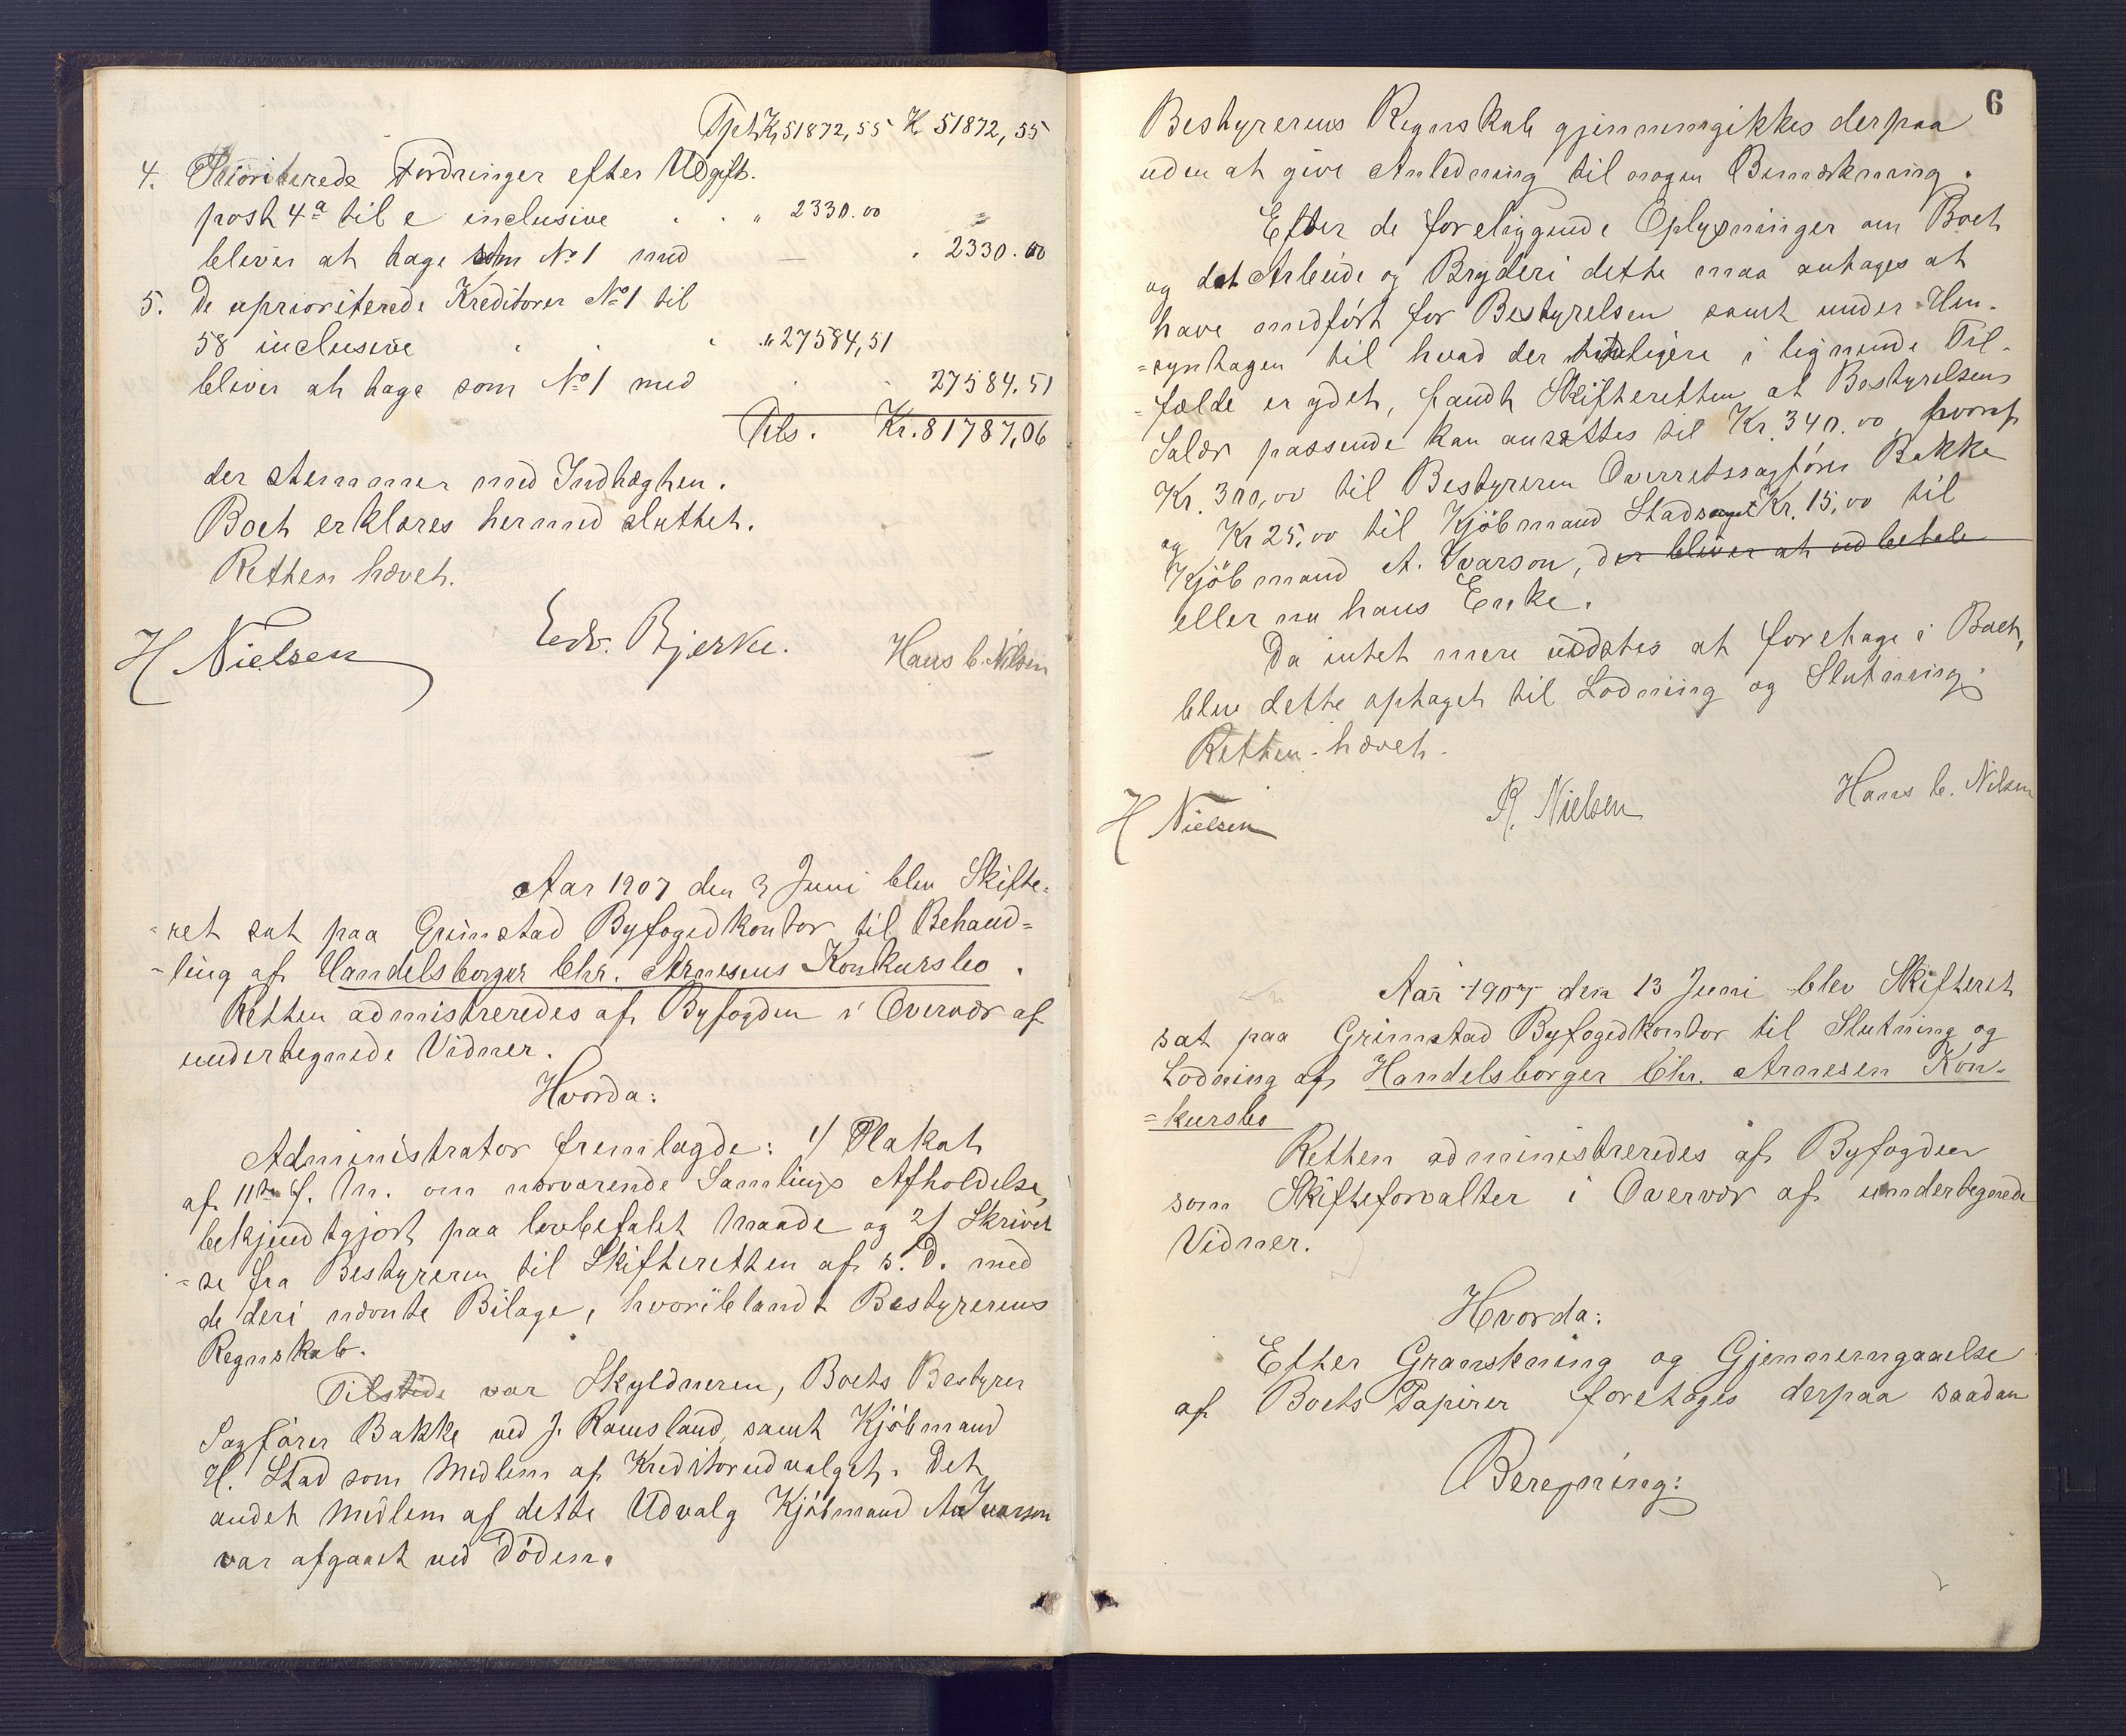 Tpt Kr. 51872,55 Kr 51872,55
4. Prioriterede Fordringer efter Udgift.
post 4a til e inclusive . . " 2330.00
bliver at tage som No 1 med — . 2330.00
5. De uprioriterede Kreditorer No 1 til
58 inclusive . . . " 27584,51
bliver at tage som No 1 med . . 27584.51
Tils. Kr. 81787,06
der stemmer med Indtægten.
Boet erklæres hermed sluttet.
Retten hævet.
H Nielsen Edv. Bjerke. Hans C. Nilsen
Aar 1907 den 3 Juni blev Skifte-
-ret sat paa Grimstad Byfogedkontor til Behand=
-ling af Handelsborger Chr. Arnesens Konkursbo.
Retten administreredes af Byfogden i Overvær af
undertegnede Vidner.
Hvorda:
Administrator fremlagde: 1/ Plakat
af 11te f. M. om nærværende Samlings Afholdelse,
bekjendtgjort paa lovbefalet Maade og 2/ Skrivel
-se fra Bestyreren til Skifteretten af s. D. med
de deri nævnte Bilage, hvoriblandt Bestyrerens
Regnskab.
Tilstede var Skyldneren, Boets Bestyrer
Sagfører Bakke ved J. Ramsland, samt Kjøbmand
H. Stad som Medlem af Kreditorudvalget. Det
andet Medlem af dette Udvalg Kjøbmand A. Ivarson
var afgaaet ved Døden.
6
Bestyrerens Regnskab gjennemgikkes derpaa
uden at give Anledning til nogen Bemærkning.
Efter de foreliggende Oplysninger om Boet
og det Arbeide og Bryderi dette maa antages at
have medført for Bestyrelsen samt under Hen-
=syntagen til hvad der tidligere i lignende Til-
=fælde er ydet, fandt Skifteretten at Bestyrelsens
Salær passende kan ansættes til Kr. 340.00, hvoraf
Kr. 300,00 til Bestyreren Overretssagfører Bakke
og Kr 25,00 til Kjøbmand Stad samt Kr. 15,00 til
Kjøbmand A. Ivarson, der bliver at udbetale
eller nu hans Enke.
Da intet mere udstes at foretage i Boet,
blev dette optaget til Lodning og Slutning.
Retten hævet.
H Nielsen R. Nielsen Hans C. Nilsen
Aar 1907 den 13 Juni blev Skifteret
sat paa Grimstad Byfogedkontor til Slutning og
Lodning af Handelsborger Chr. Arnesen Kon-
=kursbo
Retten administreredes af Byfogden
som Skifteforvalter i Overvær af undertegnede
Vidner.
Hvorda:
Efter Granskning og Gjennemgaaelse
af Boets Papirer foretoges derpaa saadan
Beregning: